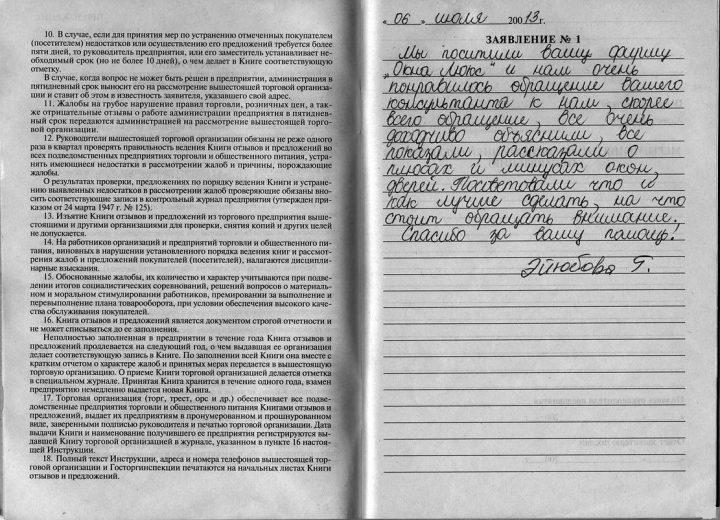 10. В случае, если для принятия мер по устранению отмеченных покупателем
(посетителем) недостатков или осуществлению его предложений требуется более
пяти дней, то руководитель предприятия, или его заместитель устанавливает не-
обходимый срок (но не более 10 дней), о чем делает в Книге соответствующую
отметку.
В случае, когда вопрос не может быть решен в предприятии, администрация в
пятидневный срок выносит его на рассмотрение вышестоящей торговой организа-
ции и ставит об этом в известность заявителя, указавшего свой адрес.
11. Жалобы на грубое нарушение правил торговли, розничных цен, а так-
же отрицательные отзывы о работе администрации предприятия в пятиднев-
ный срок передаются администрацией на рассмотрение вышестоящей торго-
вой организации.
12. Руководители вышестоящей торговой организации обязаны не реже одного
раза в квартал проверять правильность ведения Книги отзывов и предложений во
всех подведомственных предприятиях торговли и общественного питания, устра-
нять имеющиеся недостатки в рассмотрении жалоб и причины, порождающие
жалобы.
О результатах проверки, предложениях по порядку ведения Книги и устране-
нию выявленных недостатков в рассмотрении жалоб проверяющие обязаны вно-
сить соответствующие записи в контрольный журнал предприятия (утвержден при-
казом от 24 марта 1947 г. № 125).
13. Изъятие Книги отзывов и предложений из торгового предприятия выше-
стоящими и другими организациями для проверки, снятия копий и других целей
не допускается.
14. На работников организаций и предприятий торговли и общественного пи-
тания, виновных в нарушении установленного порядка ведения книг и рассмот-
рения жалоб и предложений покупателей (посетителей), налагаются дисципли-
нарные взыскания.
15. Обоснованные жалобы, их количество и характер учитываются при подве-
дении итогов социалистических соревнований, решений вопросов о материаль-
ном и моральном стимулировании работников, премировании за выполнение и
перевыполнение плана товарооборота, при условии обеспечения высокого каче-
ства обслуживания покупателей.
16. Книга отзывов и предложений является документом строгой отчетности и
не может списываться до ее заполнения.
Неполностью заполненная в предприятии в течение года Книга отзывов и
предложений продлевается на следующий год, о чем выдавшая ее организация
делает соответствующую запись в Книге. По заполнении всей Книги она вместе с
кратким отчетом о характере жалоб и принятых мерах передается в вышестоящую
торговую организацию. О приеме Книги торговой организацией делается отметка
в специальном журнале. Принятая Книга хранится в течение одного года, взамен
предприятию немедленно выдается новая Книга.
17. Торговая организация (торг, трест, орс и др.) обеспечивает все подве-
домственные предприятия торговли и общественного питания Книгами отзывов и
предложений, выдает их предприятиям в пронумерованном и прошнурованном
виде, заверенными подписью руководителя и печатью торговой организации. Дата
выдачи Книги и наименование получившего ее предприятия регистрируются вы-
давшей Книгу торговой организацией в журнале, указанном в пункте 16 настоя-
щей Инструкции.
18. Полный текст Инструкции, адреса и номера телефонов вышестоящей тор-
говой организации и Госторгинспекции печатаются на начальных листах Книги
отзывов и предложений.
« 06 » июля 20013г.
ЗАЯВЛЕНИЕ № 1
Мы поситили вашу фирму
„Окна Люкс" и нам очень
понравилось обращение вашего
консультанта к нам, скорее
всего обращение, все очень
доходчиво объяснили, все
показали, рассказали о
плюсах и минусах окон,
дверей. Посоветовали что и
как лучше сделать, на что
стоит обращать внимание.
Спасибо за вашу помощь!
Эйюбова Г.